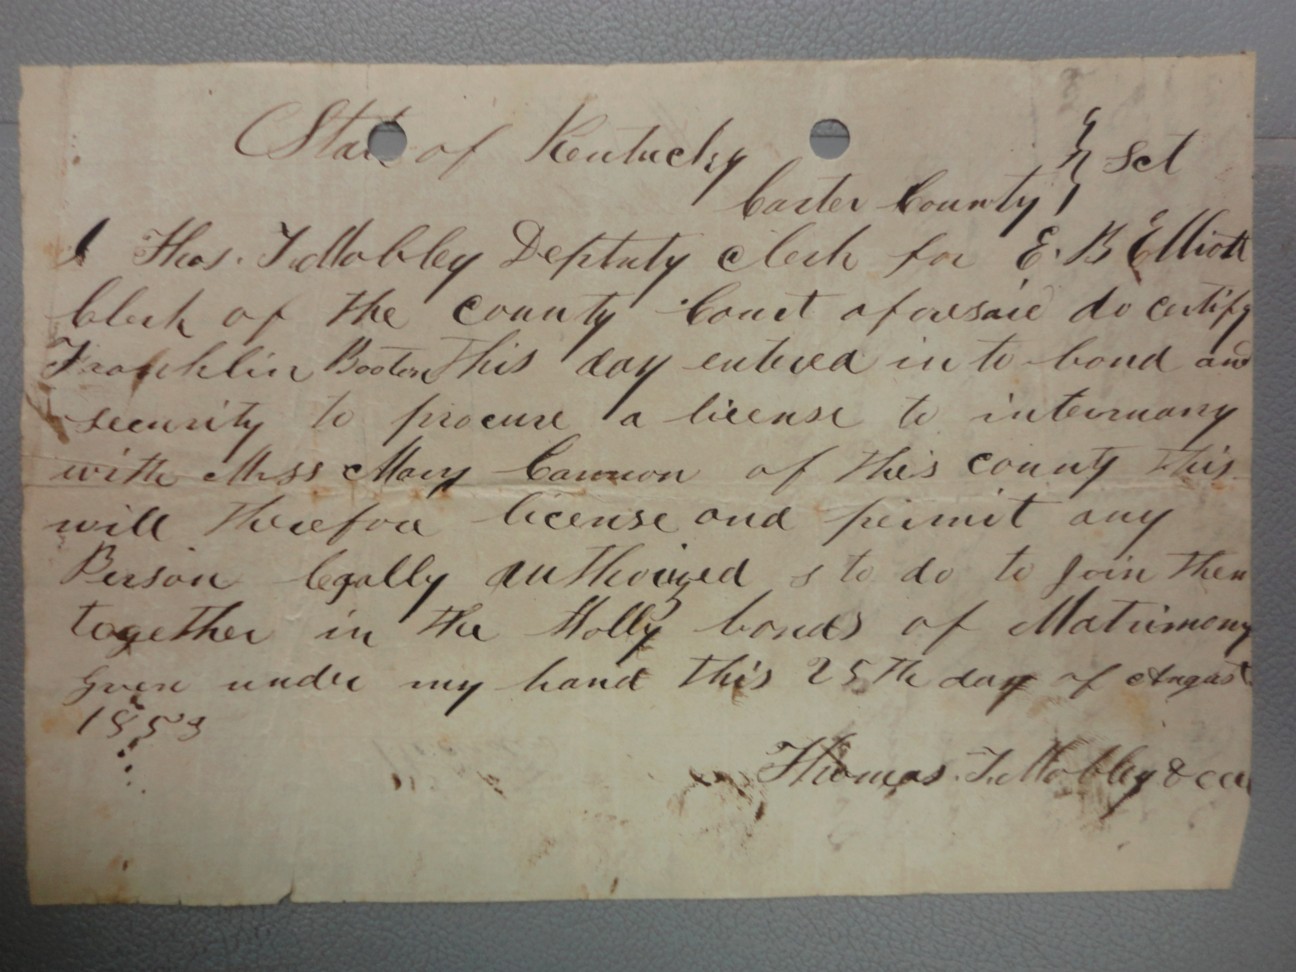 State of Kentucky } Sct
Carter County }
I Thos. T. Mobley Deptuty clerk for E. B Elliott
Clerk of the county Court aforesaid do certify
Franklin Booton this day entered in to bond and
security to procure a license to intermarry
with Miss Mary Cannon of this county this
will therefore license and permit any
Person legally authorized s to do to Join them
together in the Holly bonds of Matrimony
Given under my hand this 25th day of August
1853
Thomas. T. Mobley